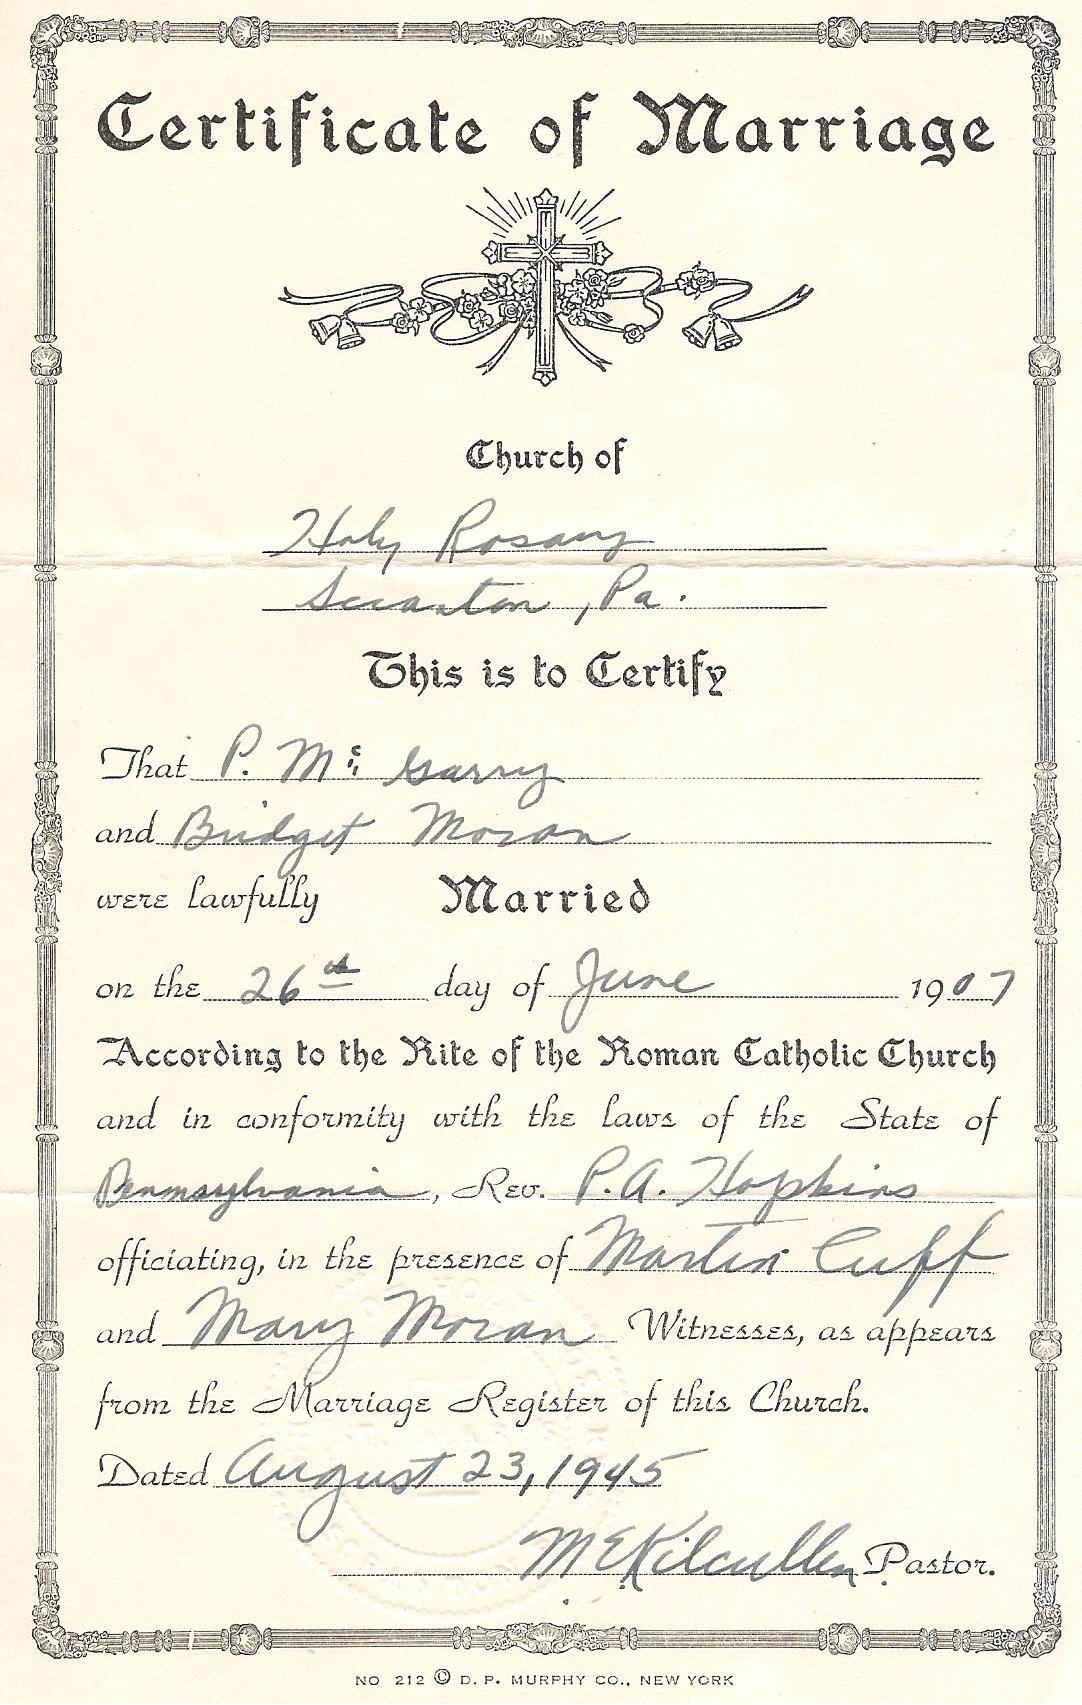 Certificate of Marriage
Church of
Holy Rosary
Scranton, Pa.
This is to Certify
That P. Mc Garry
and Bridget Moran
were lawfully Married
on the 26th day of June 1907
According to the Rite of the Roman Catholic Church
and in conformity with the laws of the State of
Pennsylvania, Rev. P. A. Hopkins
officiating, in the presence of Martin Cuff
and Mary Moran Witnesses, as appears
from the Marriage Register of this Church.
Dated August 23, 1945
M E Kilcullen Pastor.
NO 212 © D. P. MURPHY CO., NEW YORK